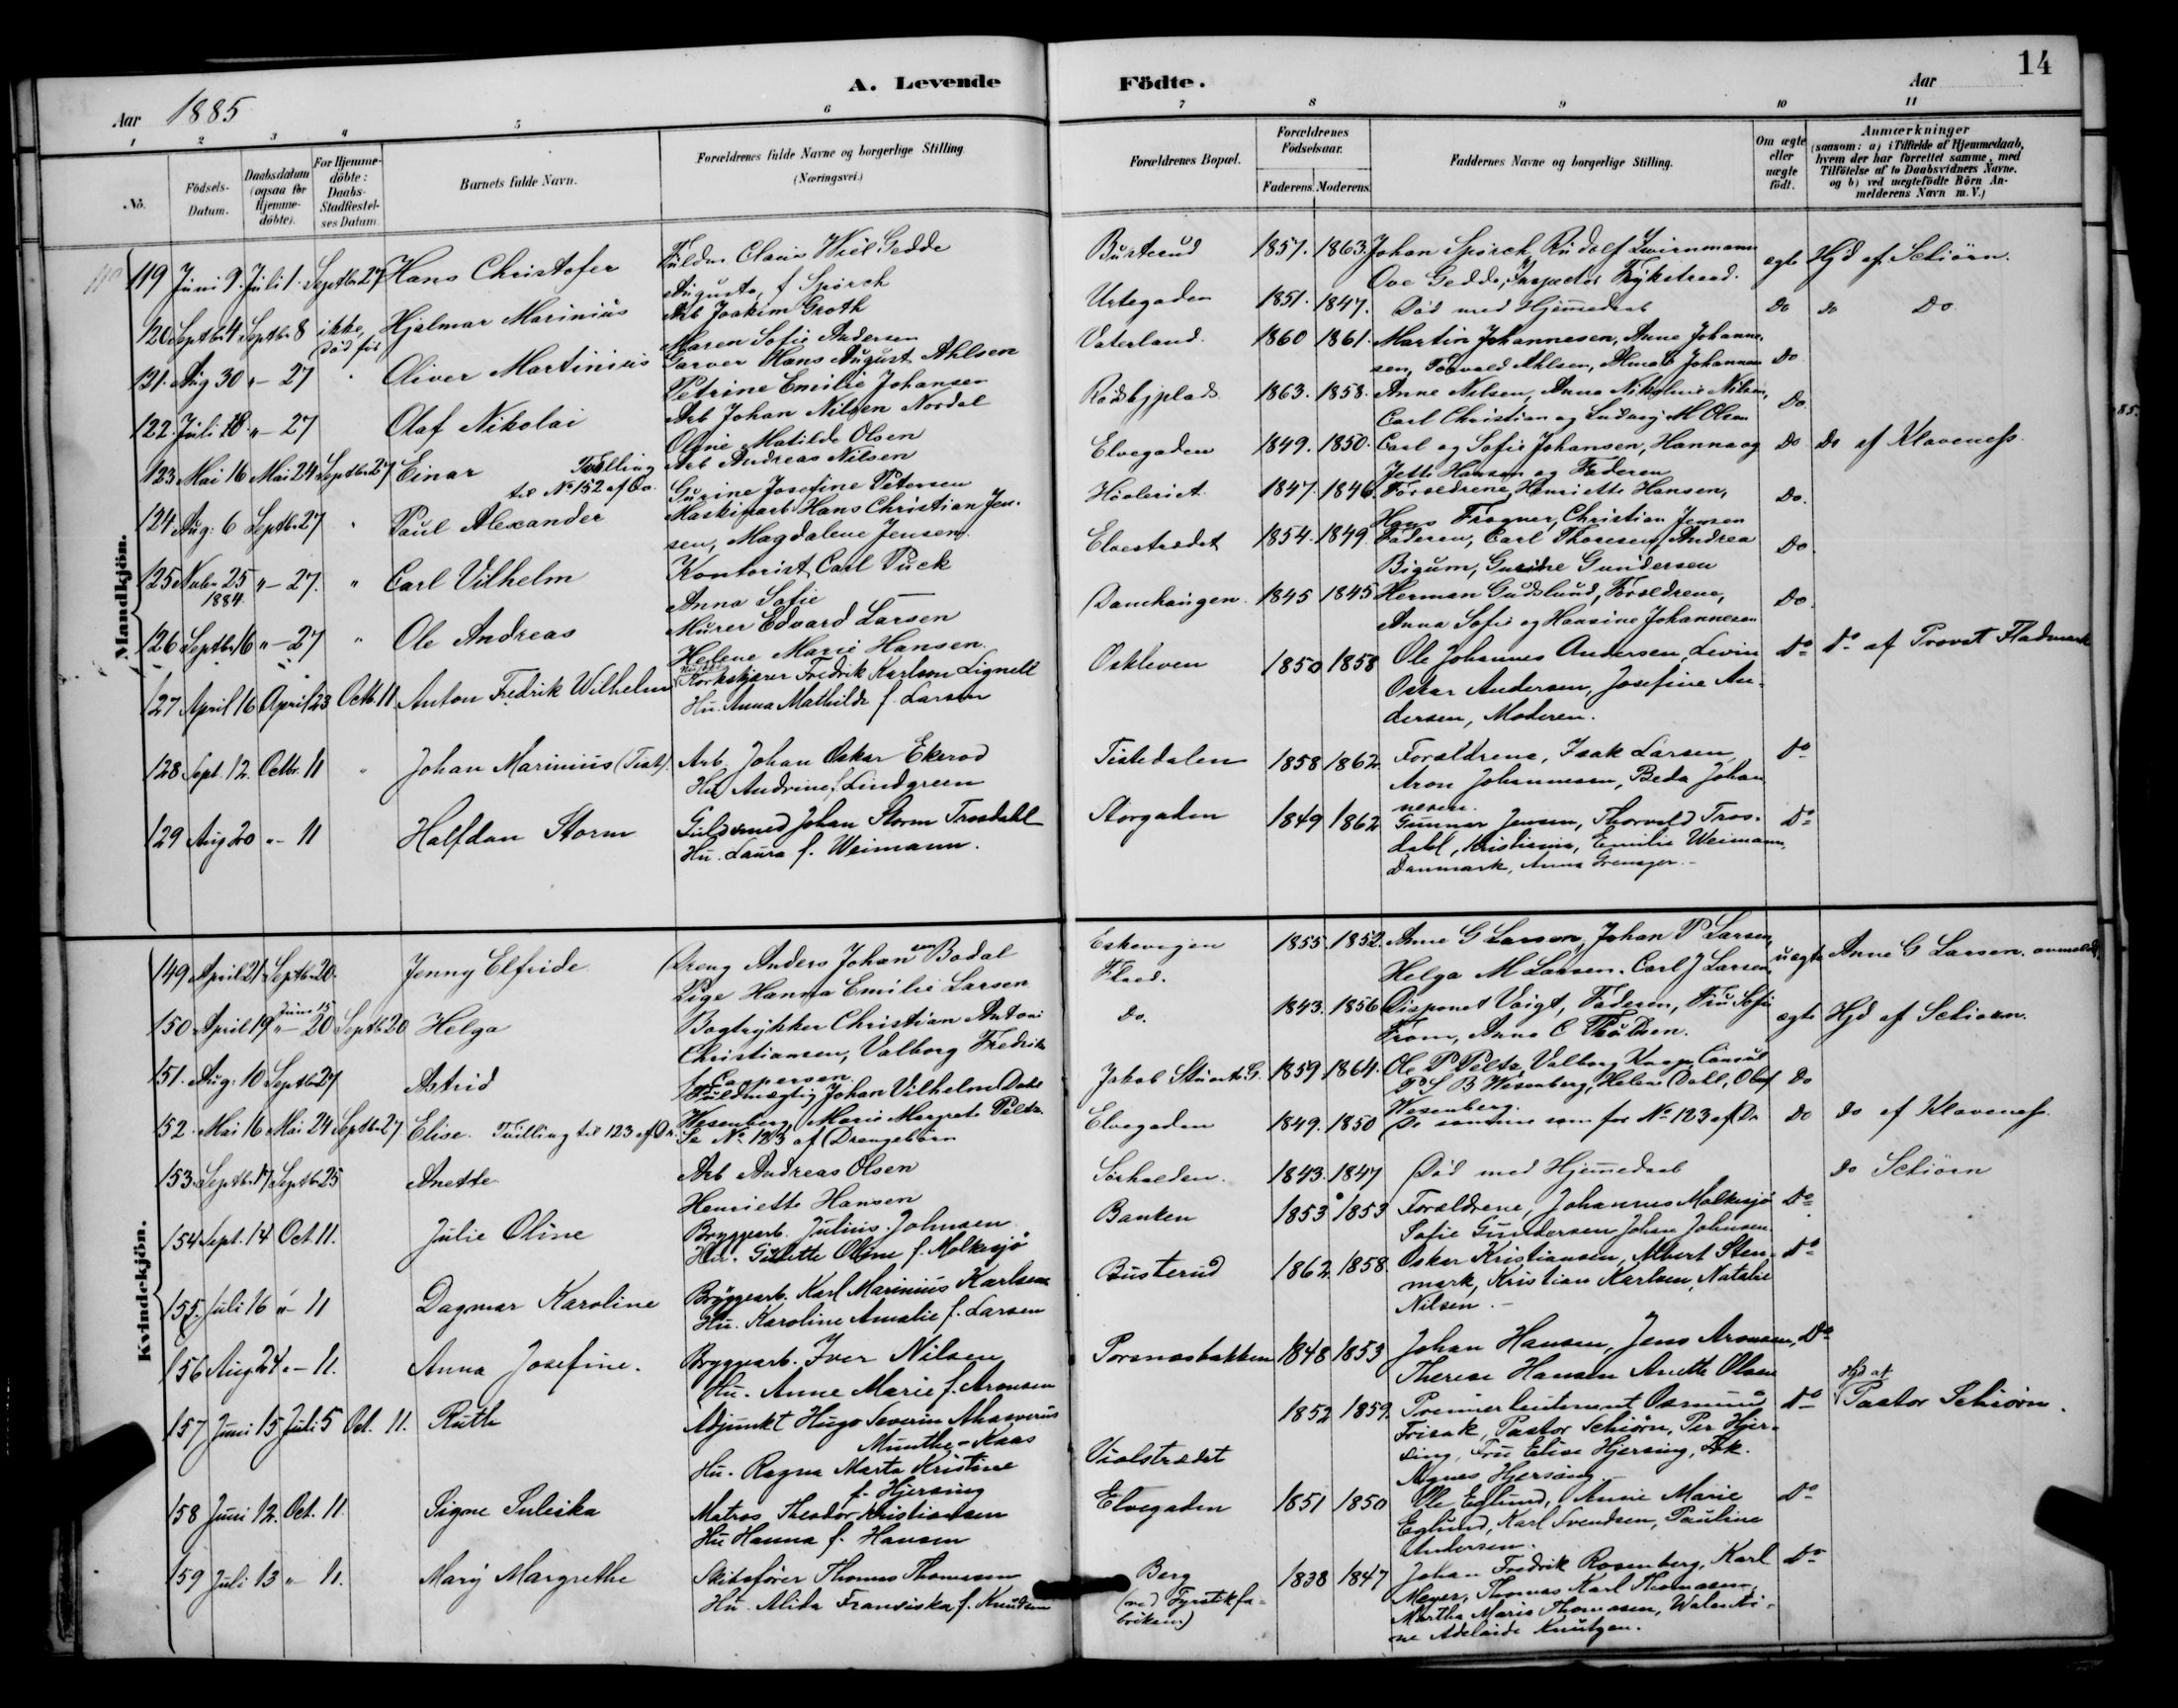 14
A. Levende Födte.
Aar 1885
Aar
1 2 3 4 5 6 7 8 9 10 11
No.
Födsels-Datum.
Daabsdatum (ogsaa for Hjemme-döbte).
For Hjemme-döbte: Daabs-Stadfæstel-ses Datum.
Barnets fulde Navn.
Forældrenes fulde Navne og borgerlige Stilling (Næringsvei.)
Forældrenes Bopæl.
Forældrenes Födselsaar.
Faderens. Moderens.
Faddernes Navne og borgerlige Stilling.
Om ægte eller uægte født.
Anmærkninger (saasom: a) i Tilfælde af Hjemmedaab, hvem der har forrettet samme, med Tilföielse af to Daabsvidners Navne. og b) ved uægtefödte Börn An-melderens Navn m.V.)
Mandkjön.
119 Juni 9. Juli 1. Septbr 27 Hans Christofer
Augusta, f Spörck
Busterud 1857. 1863. Johan Spörck, Rudolf
Ove Gedde, Inspectør
ægte Hjd af Schiörn.
120 Septbr 4 Septbr 8 ikke, død før Hjalmar Marinius
Arb Joakim Groth
Maren Sofie Andersen
Urtegaden 1851. 1847. Död med Hjemmedaab Do do Do
121. Aug 30 " - 27 Oliver Martinius
Garver Hans August Ahlsen
Petrine Emilie Johansen
Vaterland. 1860 1861. Martin Johannesen, Anne Johanne-
sen, Torvald Ahlsen, Johannesen Do
122. Juli 28. " - 27 Olaf Nikolai
Arb Johan Nilsen Nordal
Oline Matilde Olsen
1863. 1858. Anne Nilsen, Anna Nikoline Nilsen,
Carl Christian og Ludvig M Olsen Do
123 Mai 16 Mai 24 Septbr 27 Einar Tvilling
til No 152 af Do.
Arb Andreas Nilsen
Gurine Josefine Petersen
Elvegaden 1849. 1850. Carl og Sofie Johansen, Hanna og
Jette Hansen og Faderen
Do Do af Klaveness.
124. Aug. 6 Septbr 27 " Paul Alexander
Maskinarb Hans Christian Jen-
sen, Magdalene Jensen.
1847. 1846. Forældrene, Henriette Hansen,
Hans Frogner, Christian Jensen Do.
125 Novbr 25 1884. " - 27. " Carl Vilhelm
Kontorist Carl Puck
Anna Sofie —
Elvestrædet 1854. 1849. Faderen, Carl Thoresen, Andrea
Bigum, Gurine Gundersen Do.
126 Septbr 16 " - 27 " Ole Andreas
Murer Edvard Larsen
Helene Marie Hansen.
Danekaugen. 1845 1845 Herman Gudslund, Forældrene,
Anna Sofie og Hansine Johannesen Do.
127 April 16 April 23 Octb. 11. Anton Fredrik Wilhelm
Korkskjærer Fredrik Karlson Lignell
Hu. Anna Mathilde f. Larsen
Oskleven 1850 1858 Ole Johannes Andersen, Levin
Oskar Andersen, Josefine An-
dersen, Moderen.
Do Do af Provst Fladmark
128 Sept. 12. Octbr. 11 " Johan Marinius (Tist).
Arb. Johan Oskar Ekerod
Hu Andrine f. Lindgreen
Tistedalen 1858 1862 Forældrene, Isak Larsen
Aron Johannesen, Beda Johan
nesen. Do
129 Aug 20 " - 11 Halfdan Storm
Guldsmed Johan Storm Trosdahl
Hu. Laura f. Weimann.
Storgaden 1849 1862 Gunnar Jensen, Thorvald Tros-
dahl, Kristiania, Emilie Weimann,
Danmark, Anna Do
Kvindekjön.
149 April 21 Septbr 20. Jenny Elfride
Dreng Anders Johansen Bodal
Pige Hanna Emilie Larsen
Eskevigen 1855. 1852. Anne G Larsen, Johan P Larsen,
Helga M Larsen. Carl J Larsen
uægte Anne G Larsen. anmeldt.
150 April 19 Juni 15 " - 20 Septb 20 Helga
Bogtrykker Christian Antoni
Christiansen, Valborg Fredrikke
f. Caspersen
Do. 1843. 1856 Disponent Voigt, Faderen, Fru Sofie
From, Anne C
ægte Hjd af Schiörn.
151. Aug. 10 Septb 27 Astrid
Fuldmægtig Johan Vilhelm Dahl
Wesenberg, Marie Margrete Peltz.
Jakob Stuarts G. 1859. 1864. Ole P Peltz, Valborg Consul
P S B Wesenberg, Helene Dahl, Olaf
Wesenberg. Do
152. Mai 16 Mai 24 Septbr 27. Elise. Tvilling til 123 af Dr.
Se No 123 af Drengebörn
Elvegaden 1849. 1850 De samme som for No 123 af Dr Do do af Klaveness.
153. Septbr 17 Septb 25 Anette
Arb Andreas Olsen
Henriette Hansen
Sörhalden. 1843. 1847 Död med Hjemmedaab do Schiörn
154 Sept. 14 Oct. 11. Julie Oline
Bryggearb. Julius Johnsen
Hu. Gillette Oline f. Molkesjö
Banken 1853 1853 Forældrene, Johannes Molkesjö
Sofie Gundersen Johan Johnsen Do
155. Juli 16 " - 11 Dagmar Karoline
Bryggearb. Karl Marinius Karlsen
Hu. Karoline Amalie f. Larsen
Busterud 1862. 1858. Oskar Kristiansen, Albert Sten-
mark, Kristian Karlsen, Natalie
Nilsen. Do
156 Aug. 24 " - 11. Anna Josefine.
Bryggearb. Iver Nilsen
Hu. Anne Marie f. Aronsen
Porsnesbakken 1848 1853 Johan Hansen, Jens Aronsen,
Therese Hansen Anette Olsen Do
157 Juni 15 Juli 5 Oct. 11. Ruth
Adjunkt Hugo Severin Ahasverus
Munthe-Kaas
Hu. Ragna Marta Kristine
f. Hjersing
Violstrædet 1852 1859. Premierleutenant Osmund
Frisak, Pastor Schiörn, Per Hjer-
sing, Fru Elise Hjersing, Frk.
Agnes Hjersing.
Do Hjd af Pastor Schiörn.
158 Juni 12. Oct. 11. Signe Suleika
Matros Theodor Kristiansen
Hu Hanna f. Hansen
Elvegaden 1851 1850 Ole Eglund, Anne Marie
Eglund, Karl Svendsen, Pauline
Andersen. Do
159 Juli 13 " - 11. Mary Margrethe
Skibsfører Thomas Thomasen
Hu. Alida Fransiska f. Knudsen
Berg
(ved Fyrstikfa-
briken) 1838 1847 Johan Fredrik Rosenberg, Karl
Meyer, Thomas Karl Thomasen,
Martha Marie Thomasen, Walenti-
ne Adelaide Knutzen. Do